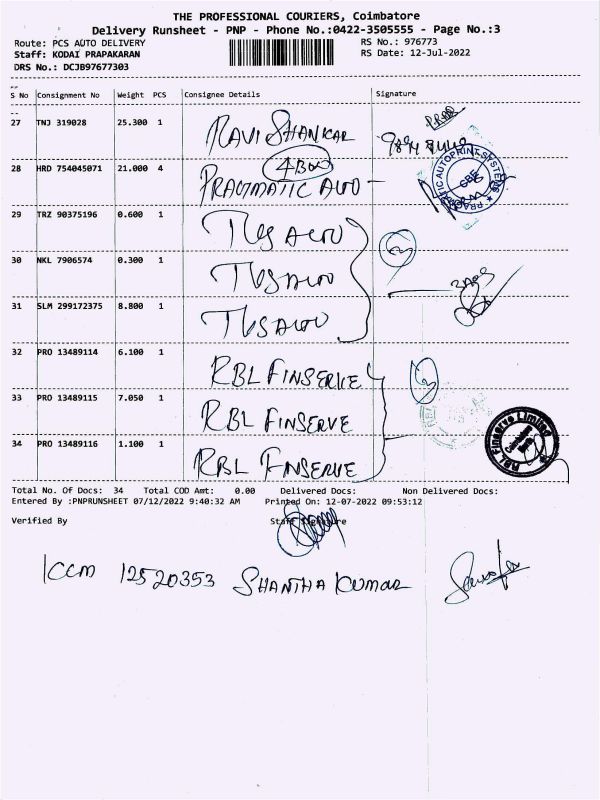 THE PROFESSIONAL COURIERS, Coimbatore
Delivery Runsheet - PNP - Phone No.:0422-3505555 - Page No.:3
Route: PCS AUTO DELIVERY RS No.: 976773
Staff: KODAI PRAPAKARAN RS Date: 12-Jul-2022
DRS No.: DCJB97677303
S No Consignment No Weight PCS Consignee Details Signature
27 TNJ 319028 25.300 1 RAVI SHANKAR
28 HRD 754045071 21.000 4 4 Box PRAGMATIC AUTO
PRAGMATIC AUTOPRINT SYSTEMS CBE
29 TRZ 90375196 0.600 1 TVS AUTO
30 NKL 7906574 0.300 1 TVS AUTO 3
31 SLM 299172375 8.800 1 TVS AUTO
32 PRO 13489114 6.100 1 RBL FINSERVE
33 PRO 13489115 7.050 1 RBL FINSERVE 3
34 PRO 13489116 1.100 1 RBL FINSERVE
RBL Finserve Limited Coimbatore
Total No. Of Docs: 34 Total COD Amt: 0.00 Delivered Docs: Non Delivered Docs:
Entered By :PNPRUNSHEET 07/12/2022 9:40:32 AM Printed On: 12-07-2022 09:53:12
Verified By Staff Signature
ICCM 12520353 SHANTHA KUMAR